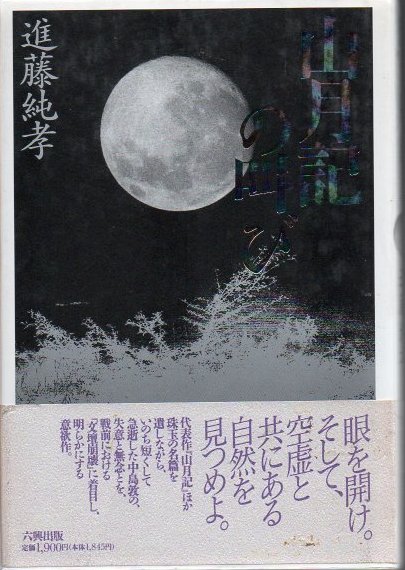 山月記
の叫び
進藤純孝
眼を開け。
そして、
空虚と
共にある
自然を
見つめよ。
代表作『山月記』ほか
珠玉の名篇を
遺しながら、
いのち短くして
急逝した中島敦の、
失意と無念とを、
戦前における
「文壇崩壊」に着目し、
明らかにする
意欲作。
六興出版
定価1,900円(本体1,845円)